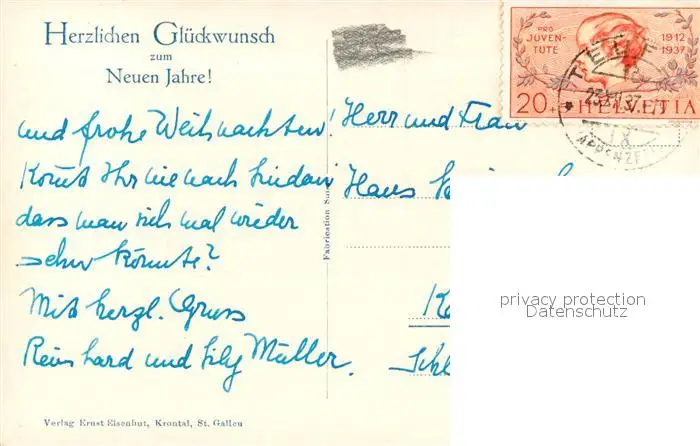 Herzlichen Glückwunsch
zum
Neuen Jahre!
und frohe Weihnachten!
Komt Ihr nie nach Lindau
dass man sich mal wieder
sehn könnte?
Mit herzl. Gruss
Reinhard und Lily Müller.
Herr und Frau
Hans
Fabrication
PRO
JUVEN-
TUTE
1912
1937
20
HELVETIA
privacy protection
Datenschutz
Verlag Ernst Eisenhut, Krontal, St. Gallen